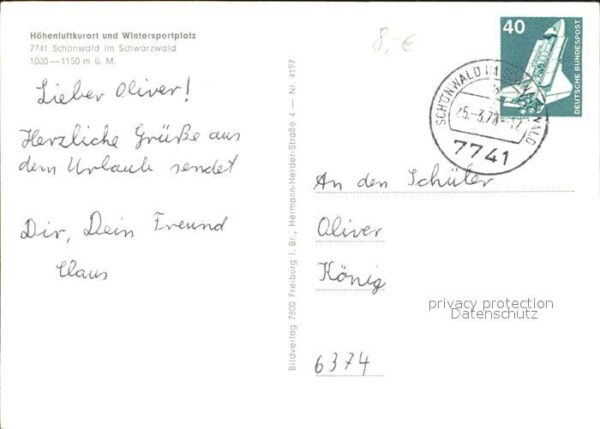 Höhenluftkurort und Wintersportplatz
7741 Schönwald im Schwarzwald
1000—1150 m ü. M.
Lieber Oliver!
Herzliche Grüße aus
dem Urlaub sendet
Dir, Dein Freund
Claus
Bildverlag 7800 Freiburg i. Br., Hermann-Herder-Straße 4 — Nr. 4197
8,-€
40
DEUTSCHE BUNDESPOST
SCHÖNWALD IM SCHWARZWALD
7741
An den Schüler
Oliver
König
privacy protection
Datenschutz
6374